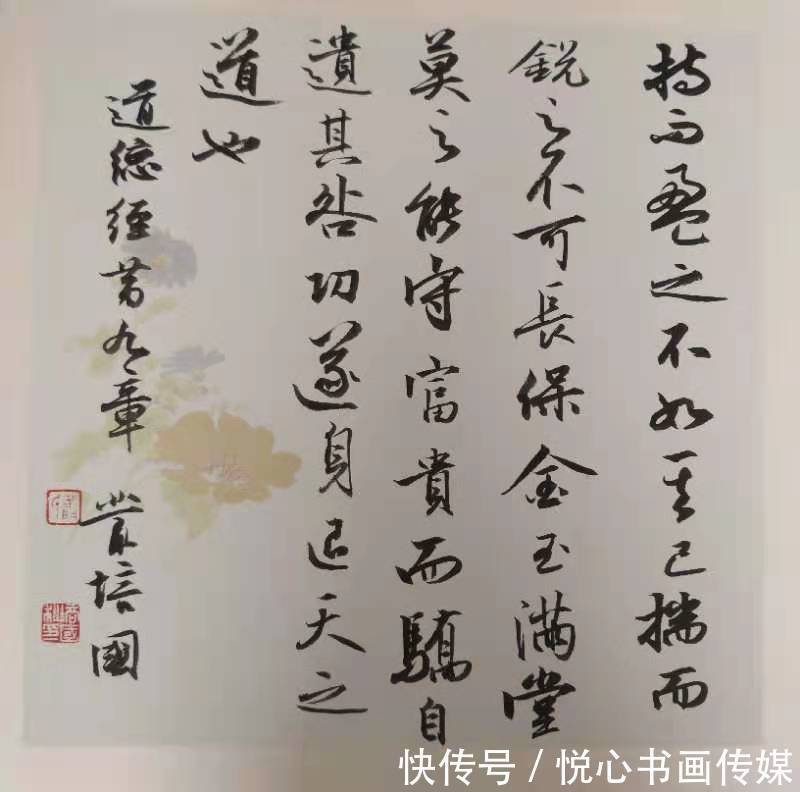 持而盈之不如其已揣而
鋭之不可長保金玉滿堂
莫之能守富貴而驕自
遺其咎功遂身退天之
道也
道德经第九章 培國
快传号 / 悦心书画传媒